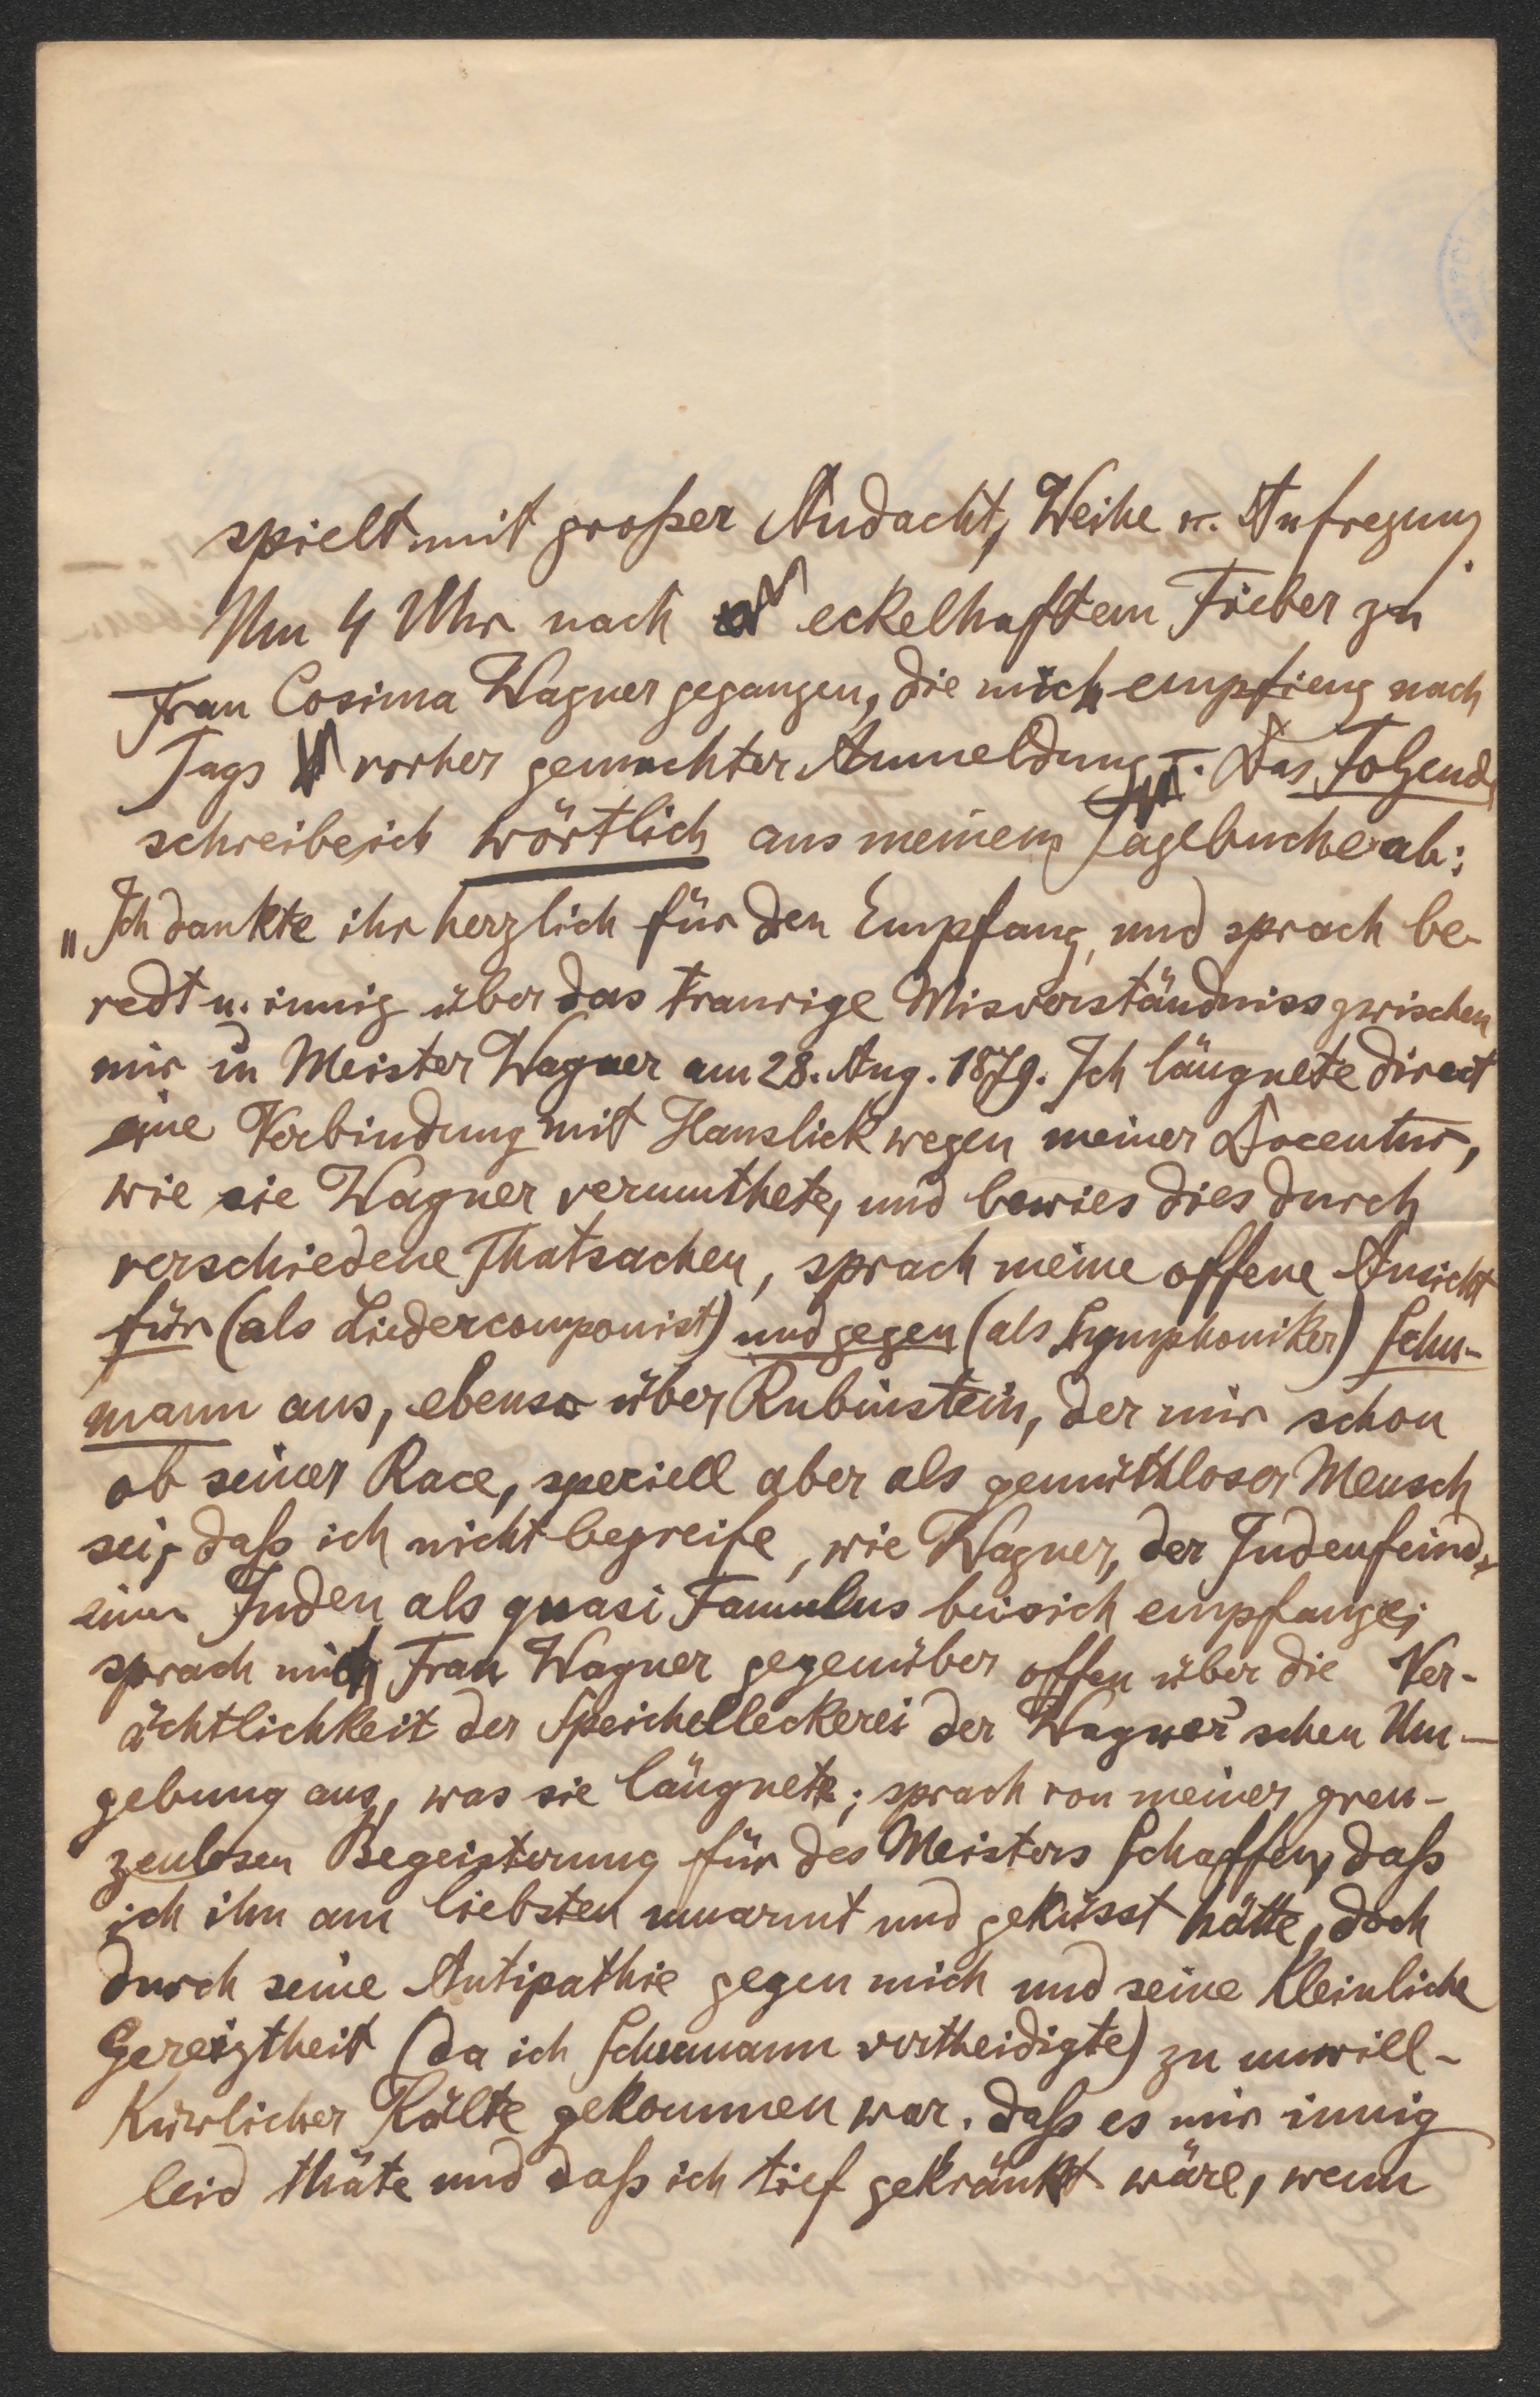 spielt mit großer Andacht, Weihe u. Aufregung.
Um 4 Uhr nach eckelhaftem Fieber zu
Frau Cosima Wagner gegangen, die mich empfieng nach
Tags vorher gemachter Anmeldung –. Das Folgende
schreibe ich wörtlich aus meinem Tagebuche ab:
„Ich dankte ihr herzlich für den Empfang, und sprach be-
redt u. innig über das traurige Misverständniss zwischen
mir u Meister Wagner am 28. Aug. 1879. Ich läugnete direct
eine Verbindung mit Hanslick wegen meiner Docentur,
wie sie Wagner vermuthete, und bewies dies durch
verschiedene Thatsachen, sprach meine offene Ansicht
für (als Liedercomponist) und gegen (als Symphoniker) Schu-
mann aus, ebenso über Rubinstein, der mir schon
ob seiner Race, speciell aber als gemüthloser Mensch
sei, daß ich nicht begreife, wie Wagner, der Judenfeind,
einen Juden als quasi Famulus bei sich empfange;
sprach mich Frau Wagner gegenüber offen über die Ver-
ächtlichkeit der Speichelleckerei der Wagner'schen Um-
gebung aus, was sie läugnete; sprach von meiner gren-
zenlosen Begeisterung für des Meisters Schaffen, daß
ich ihn am liebsten umarmt und geküsst hätte, doch
durch seine Antipathie gegen mich und seine kleinliche
Gereiztheit (da ich Schumann vertheidigte) zu unwill-
kürlicher Kälte gekommen war. daß es mir innig
leid thäte und daß ich tief gekränkt wäre, wenn